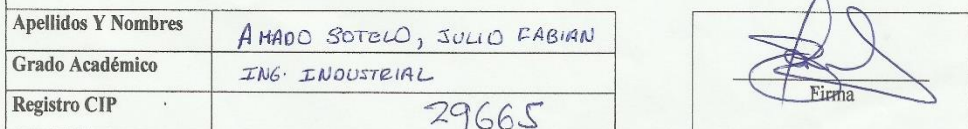 Apellidos Y Nombres AMADO SOTELO, JULIO FABIAN
Grado Académico ING. INDUSTRIAL
Registro CIP 29665
Firma